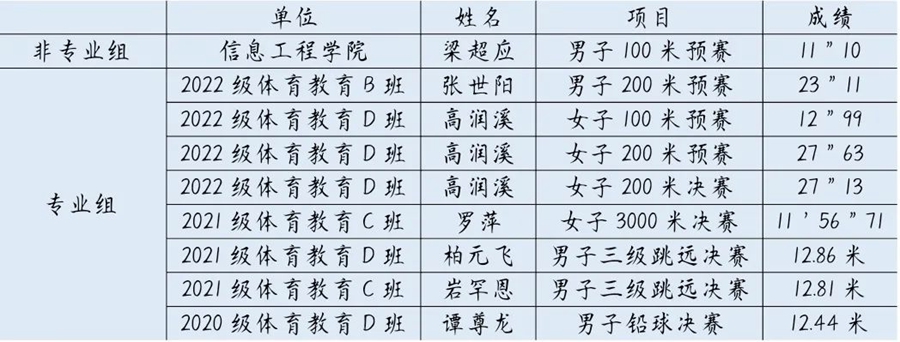 单位 姓名 项目 成绩
非专业组 信息工程学院 梁超应 男子100米预赛 11”10
2022级体育教育B班 张世阳 男子200米预赛 23”11
2022级体育教育D班 高润溪 女子100米预赛 12”99
2022级体育教育D班 高润溪 女子200米预赛 27”63
专业组 2022级体育教育D班 高润溪 女子200米决赛 27”13
2021级体育教育C班 罗萍 女子3000米决赛 11’56”71
2021级体育教育D班 柏元飞 男子三级跳远决赛 12.86米
2021级体育教育C班 岩罕恩 男子三级跳远决赛 12.81米
2020级体育教育D班 谭尊龙 男子铅球决赛 12.44米